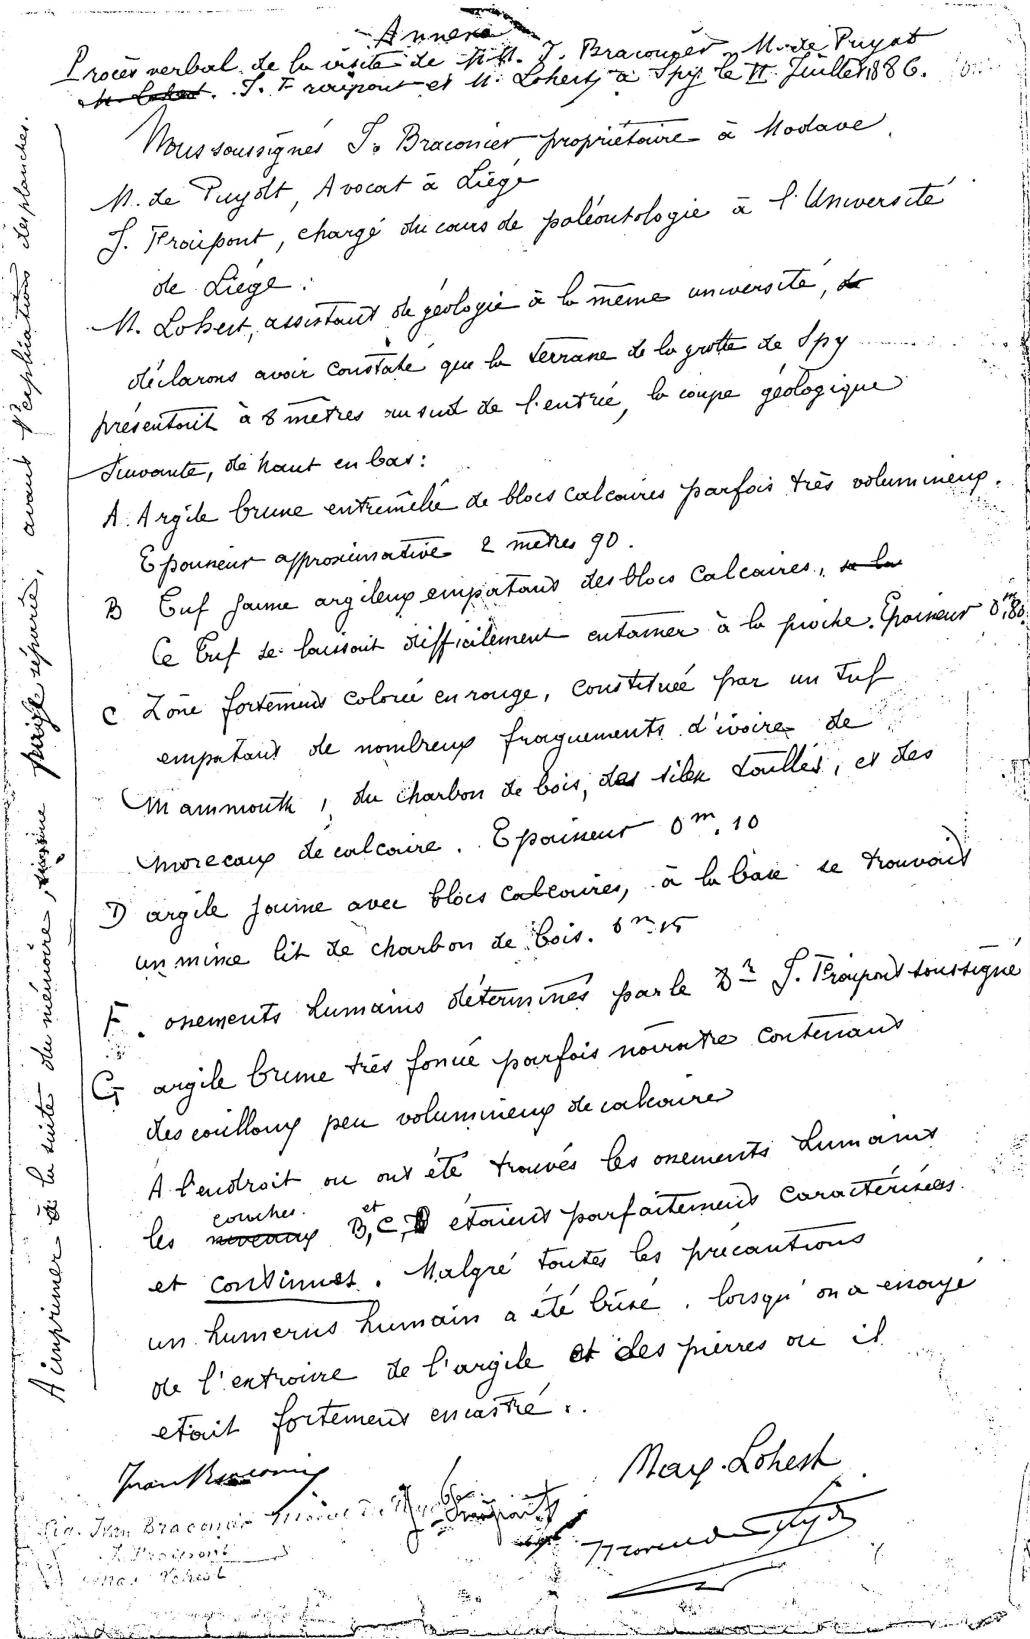 Annexe
Procès verbal de la visite de MM. J. Braconier M. de Puydt
M. Lohest. J. Fraipont et M. Lohest à Spy le 11 Juillet 1886.
Nous soussignés J. Braconier propriétaire à Modave.
M. de Puydt, Avocat à Liége
J. Fraipont, chargé du cours de paléontologie à l'Université
de Liége.
M. Lohest, assistant de géologie à la même université, de
déclarons avoir constaté que la terrasse de la grotte de Spy
présentait à 8 mètres au sud de l'entrée, la coupe géologique
suivante, de haut en bas:
A. Argile brune entremêlée de blocs calcaires parfois très volumineux.
Epaisseur approximative 2 mètres 90.
B Tuf jaune argileux empatant des blocs calcaires, se la
Ce tuf se laissait difficilement entamer à la pioche. Epaisseur 0m,80.
C Zône fortement colorée en rouge, constituée par un tuf
empatant de nombreux fraguements d'ivoire de
Mammouth, du charbon de bois, des silex taillés, et des
morceaux de calcaire. Epaisseur 0m.10
D argile jaune avec blocs calcaires, à la base se trouvait
un mince lit de charbon de bois. 0m15
F. ossements humains déterminés par le Dr J. Fraipont soussigné
G argile brune très foncée parfois noiratre contenant
des cailloux peu volumineux de calcaire
A l'endroit ou ont été trouvés les ossements humains
les niveaux couches B, C, et D étaient parfaitement caractérisées
et continues. Malgré toutes les précautions
un humerus humain a été brisé, lorsqu'on a essayé
de l'extraire de l'argile et des pierres ou il
etait fortement encastré.
Ivan Braconier
Max. Lohest
J. Fraipont
Marcel de Puydt
Sig. Ivan Braconier Marcel de Puydt
J. Fraipont
Max Lohest
A imprimer à la suite du mémoire, page séparée, avant l'explications des planches.